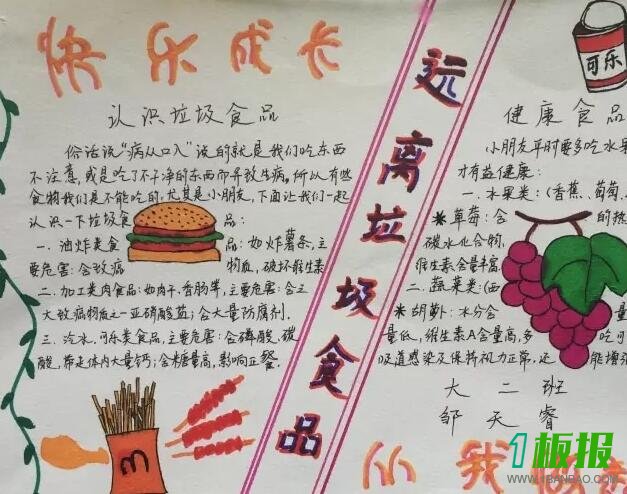 快乐成长
认识垃圾食品
俗话说“病从口入”说的就是我们吃东西
不注意,或是吃了不干净的东西而导致生病。所以有些
食物我们是不能吃的,尤其是小朋友,下面让我们一起
认识一下垃圾食品:
一.油炸类食品:如炸薯条,主
要危害:含致癌物质,破坏维生素
二.加工类肉食品:如肉干,香肠等,主要危害:含三
大致癌物质之一亚硝酸盐;含大量防腐剂.
三.汽水.可乐类食品,主要危害:含磷酸,碳
酸,带走体内大量钙;含糖量高,影响正餐.
远离垃圾食品
可乐
健康食品
小朋友平时要多吃水果
才有益健康:
一.水果类:(香蕉、葡萄、
*草莓:含 的热
碳水化合物,
维生素含量丰富
二.蔬菜类:(西
*胡萝卜:水分含 量
量低,维生素A含量高,多吃可
吸道感染及保持视力正常,还 能增强
大二班
邹天睿
m
我
1板报
WWW.1BANBAO.COM